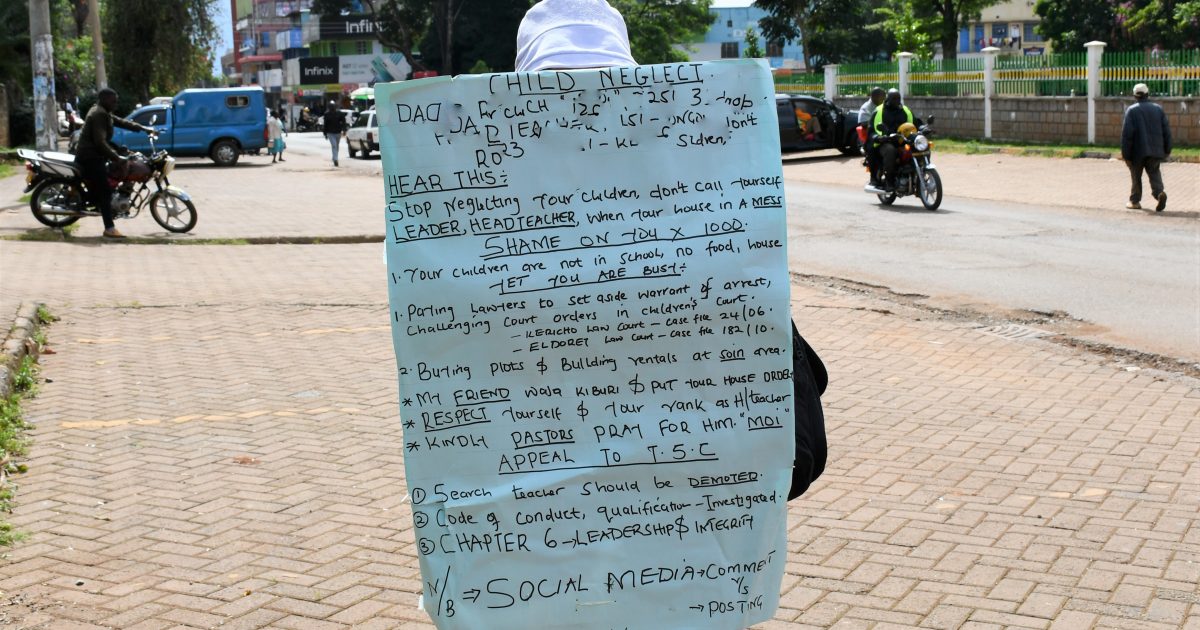 Infinix
Infinix
CHILD NEGLECT.
DAD
RO23
HEAR THIS:-
Stop Neglecting Your Children, don't call Yourself
LEADER, HEADTEACHER, when Your house in A MESS
SHAME ON YOU X 1000.
1. Your children are not in School, no food, house
YET YOU ARE BUSY:-
1. Paying Lawyers to set aside warrant of arrest,
Challenging Court orders in children's Court.
- KERICHO Law Court - Case file 24/06.
- ELDORET Law Court - Case file 182/10.
2. Buying Plots $ Building rentals at Soin area.
* MY FRIEND Waja KIBURI $ PUT YOUR HOUSE ORDER
* RESPECT Yourself $ Your rank as H/teacher
* KINDLY PASTORS PRAY FOR HIM. "MOI"
APPEAL TO T.S.C
① Search teacher should be DEMOTED.
② Code of Conduct, qualification - Investigated.
③ CHAPTER 6 → LEADERSHIP $ INTEGRITY
N/B ⇒ SOCIAL MEDIA → COMMENT
Y/S
→ POSTING